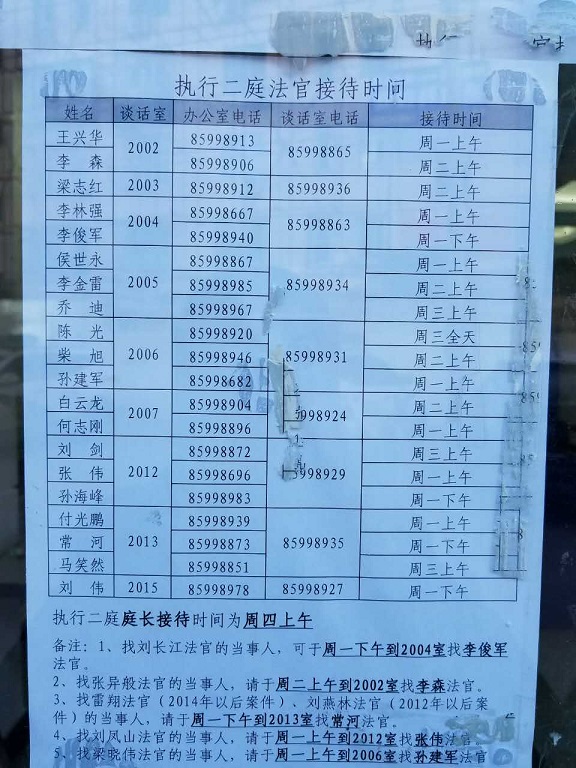 执行二庭法官接待时间
姓名 谈话室 办公室电话 谈话室电话 接待时间
王兴华 2002 85998913 85998865 周一上午
李 森 85998906 周二上午
梁志红 2003 85998912 85998936 周二上午
李林强 2004 85998667 85998863 周一上午
李俊军 85998940 周一下午
侯世永 2005 85998867 85998934 周一上午
李金雷 85998985 周二上午
乔 迪 85998967 周三上午
陈 光 2006 85998920 85998931 周三全天
柴 旭 85998946 周二上午
孙建军 85998682 周一上午
白云龙 2007 85998904 998924 周二上午
何志刚 85998896 周一上午
刘 剑 2012 85998872 5998929 周三上午
张 伟 85998696 周一上午
孙海峰 85998983 周一下午
付光鹏 2013 85998939 85998935 周一上午
常 河 85998873 周一下午
马笑然 85998851 周三上午
刘 伟 2015 85998978 85998927 周一下午
执行二庭庭长接待时间为周四上午
备注：1、找刘长江法官的当事人，可于周一下午到2004室找李俊军
法官。
2、找张异般法官的当事人，请于周二上午到2002室找李森法官。
3、找雷翔法官（2014年以后案件）、刘燕林法官（2012年以后案
件）的当事人，请于周一下午到2013室找常河法官。
4、找刘凤山法官的当事人，请于周一上午到2012室找张伟法官
5、找梁晓伟法官的当事人，请于周一上午到2006室找孙建军法官